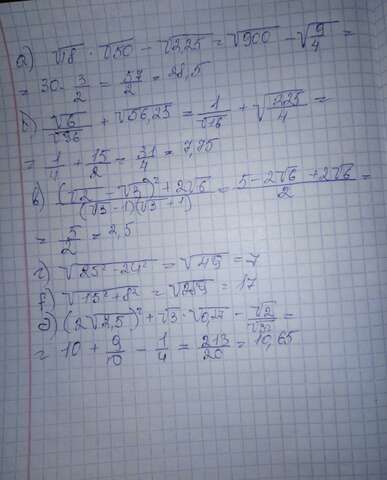 а) √18 · √50 − √2,25 = √900 − √9/4 =
= 30 - 3/2 = 57/2 = 28,5
б) √6/√96 + √56,25 = 1/√16 + √225/4 =
= 1/4 + 15/2 = 31/4 = 7,75
в) (√2 - √3)² + 2√6/(√3 - 1)(√3 + 1) = 5 - 2√6 + 2√6/2 =
= 5/2 = 2,5
г) √25² - 24² = √49 = 7
√15² + 8² = √289 = 17
(2√2,5)² + √3 · √0,27 - √2/√32 =
= 10 + 9/10 - 1/4 = 213/20 = 10,65